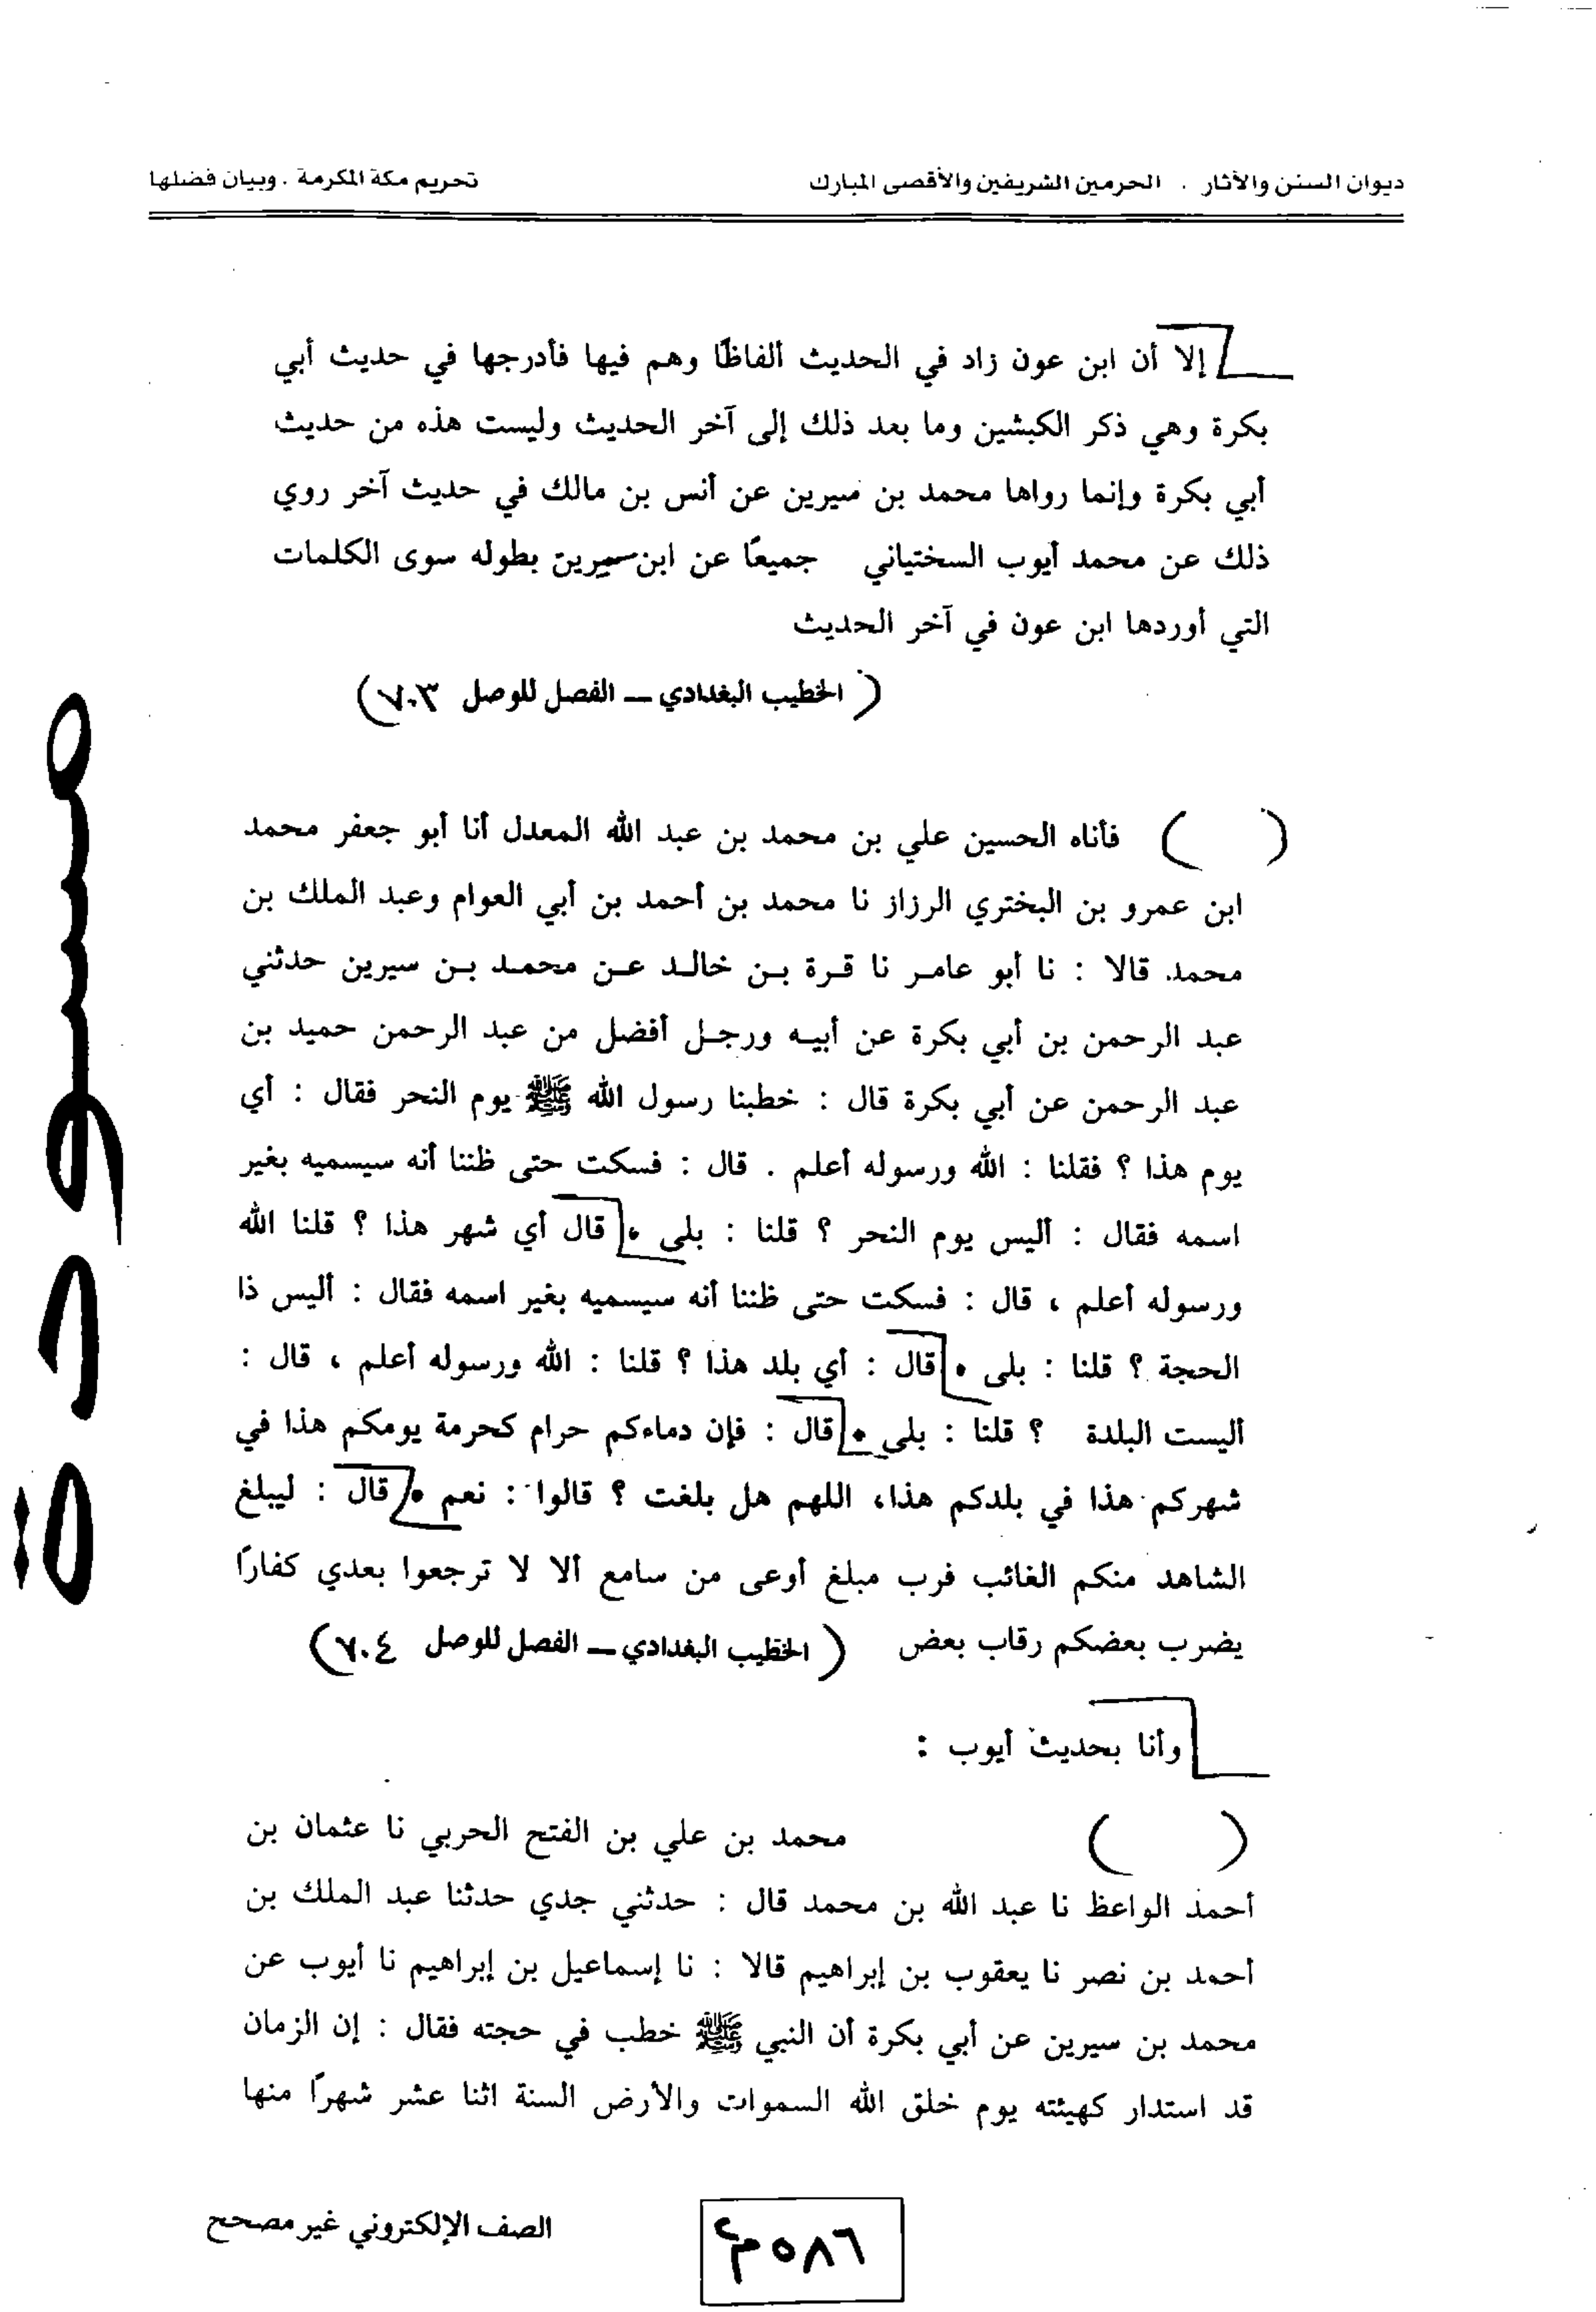 ديوان السنن والآثار . الحرمين الشريفين والأقصى المبارك
تحريم مكة المكرمة . وبيان فضلها
إلا أن ابن عون زاد في الحديث ألفاظًا وهم فيها فأدرجها في حديث أبي
بكرة وهي ذكر الكبشين وما بعد ذلك إلى آخر الحديث وليست هذه من حديث
أبي بكرة وإنما رواها محمد بن سيرين عن أنس بن مالك في حديث آخر روي
ذلك عن محمد أيوب السختياني جميعًا عن ابن سيرين بطوله سوى الكلمات
التي أوردها ابن عون في آخر الحديث
( الخطيب البغدادي – الفصل للوصل ٧٠٣ )
( ) فأناه الحسين علي بن محمد بن عبد الله المعدل أنا أبو جعفر محمد
ابن عمرو بن البختري الرزاز نا محمد بن أحمد بن أبي العوام وعبد الملك بن
محمد. قالا : نا أبو عامر نا قرة بن خالد عن محمد بن سيرين حدثني
عبد الرحمن بن أبي بكرة عن أبيه ورجل أفضل من عبد الرحمن حميد بن
عبد الرحمن عن أبي بكرة قال : خطبنا رسول الله ﷺ يوم النحر فقال : أي
يوم هذا ؟ فقلنا : الله ورسوله أعلم . قال : فسكت حتى ظننا أنه سيسميه بغير
اسمه فقال : أليس يوم النحر ؟ قلنا : بلى . قال أي شهر هذا ؟ قلنا الله
ورسوله أعلم ، قال : فسكت حتى ظننا أنه سيسميه بغير اسمه فقال : أليس ذا
الحجة ؟ قلنا : بلى . قال : أي بلد هذا ؟ قلنا : الله ورسوله أعلم ، قال :
أليست البلدة ؟ قلنا : بلى . قال : فإن دماءكم حرام كحرمة يومكم هذا في
شهركم هذا في بلدكم هذا، اللهم هل بلغت ؟ قالوا : نعم . قال : ليبلغ
الشاهد منكم الغائب فرب مبلغ أوعى من سامع ألا لا ترجعوا بعدي كفارًا
يضرب بعضكم رقاب بعض ( الخطيب البغدادي – الفصل للوصل ٧٠٤ )
وأنا بحديث أيوب :
( ) محمد بن علي بن الفتح الحربي نا عثمان بن
أحمد الواعظ نا عبد الله بن محمد قال : حدثني جدي حدثنا عبد الملك بن
أحمد بن نصر نا يعقوب بن إبراهيم قالا : نا إسماعيل بن إبراهيم نا أيوب عن
محمد بن سيرين عن أبي بكرة أن النبي ﷺ خطب في حجته فقال : إن الزمان
قد استدار كهيئته يوم خلق الله السموات والأرض السنة اثنا عشر شهرًا منها
٥٨٦م٤
الصف الإلكتروني غير مصحح
مسودة